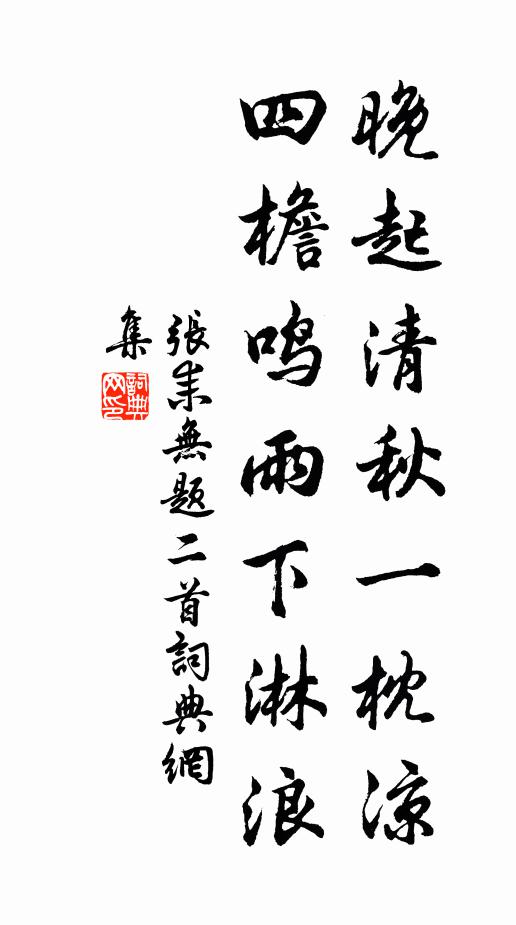 晚起清秋一枕涼
四檐鳴雨下淋浪
張耒無題二首詞典網
集
詞典网印